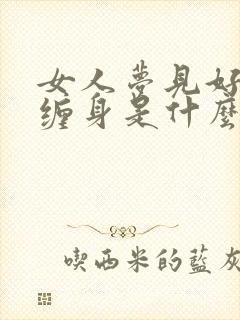 女人夢見好
纏身是什麼
喫西米的藍灰